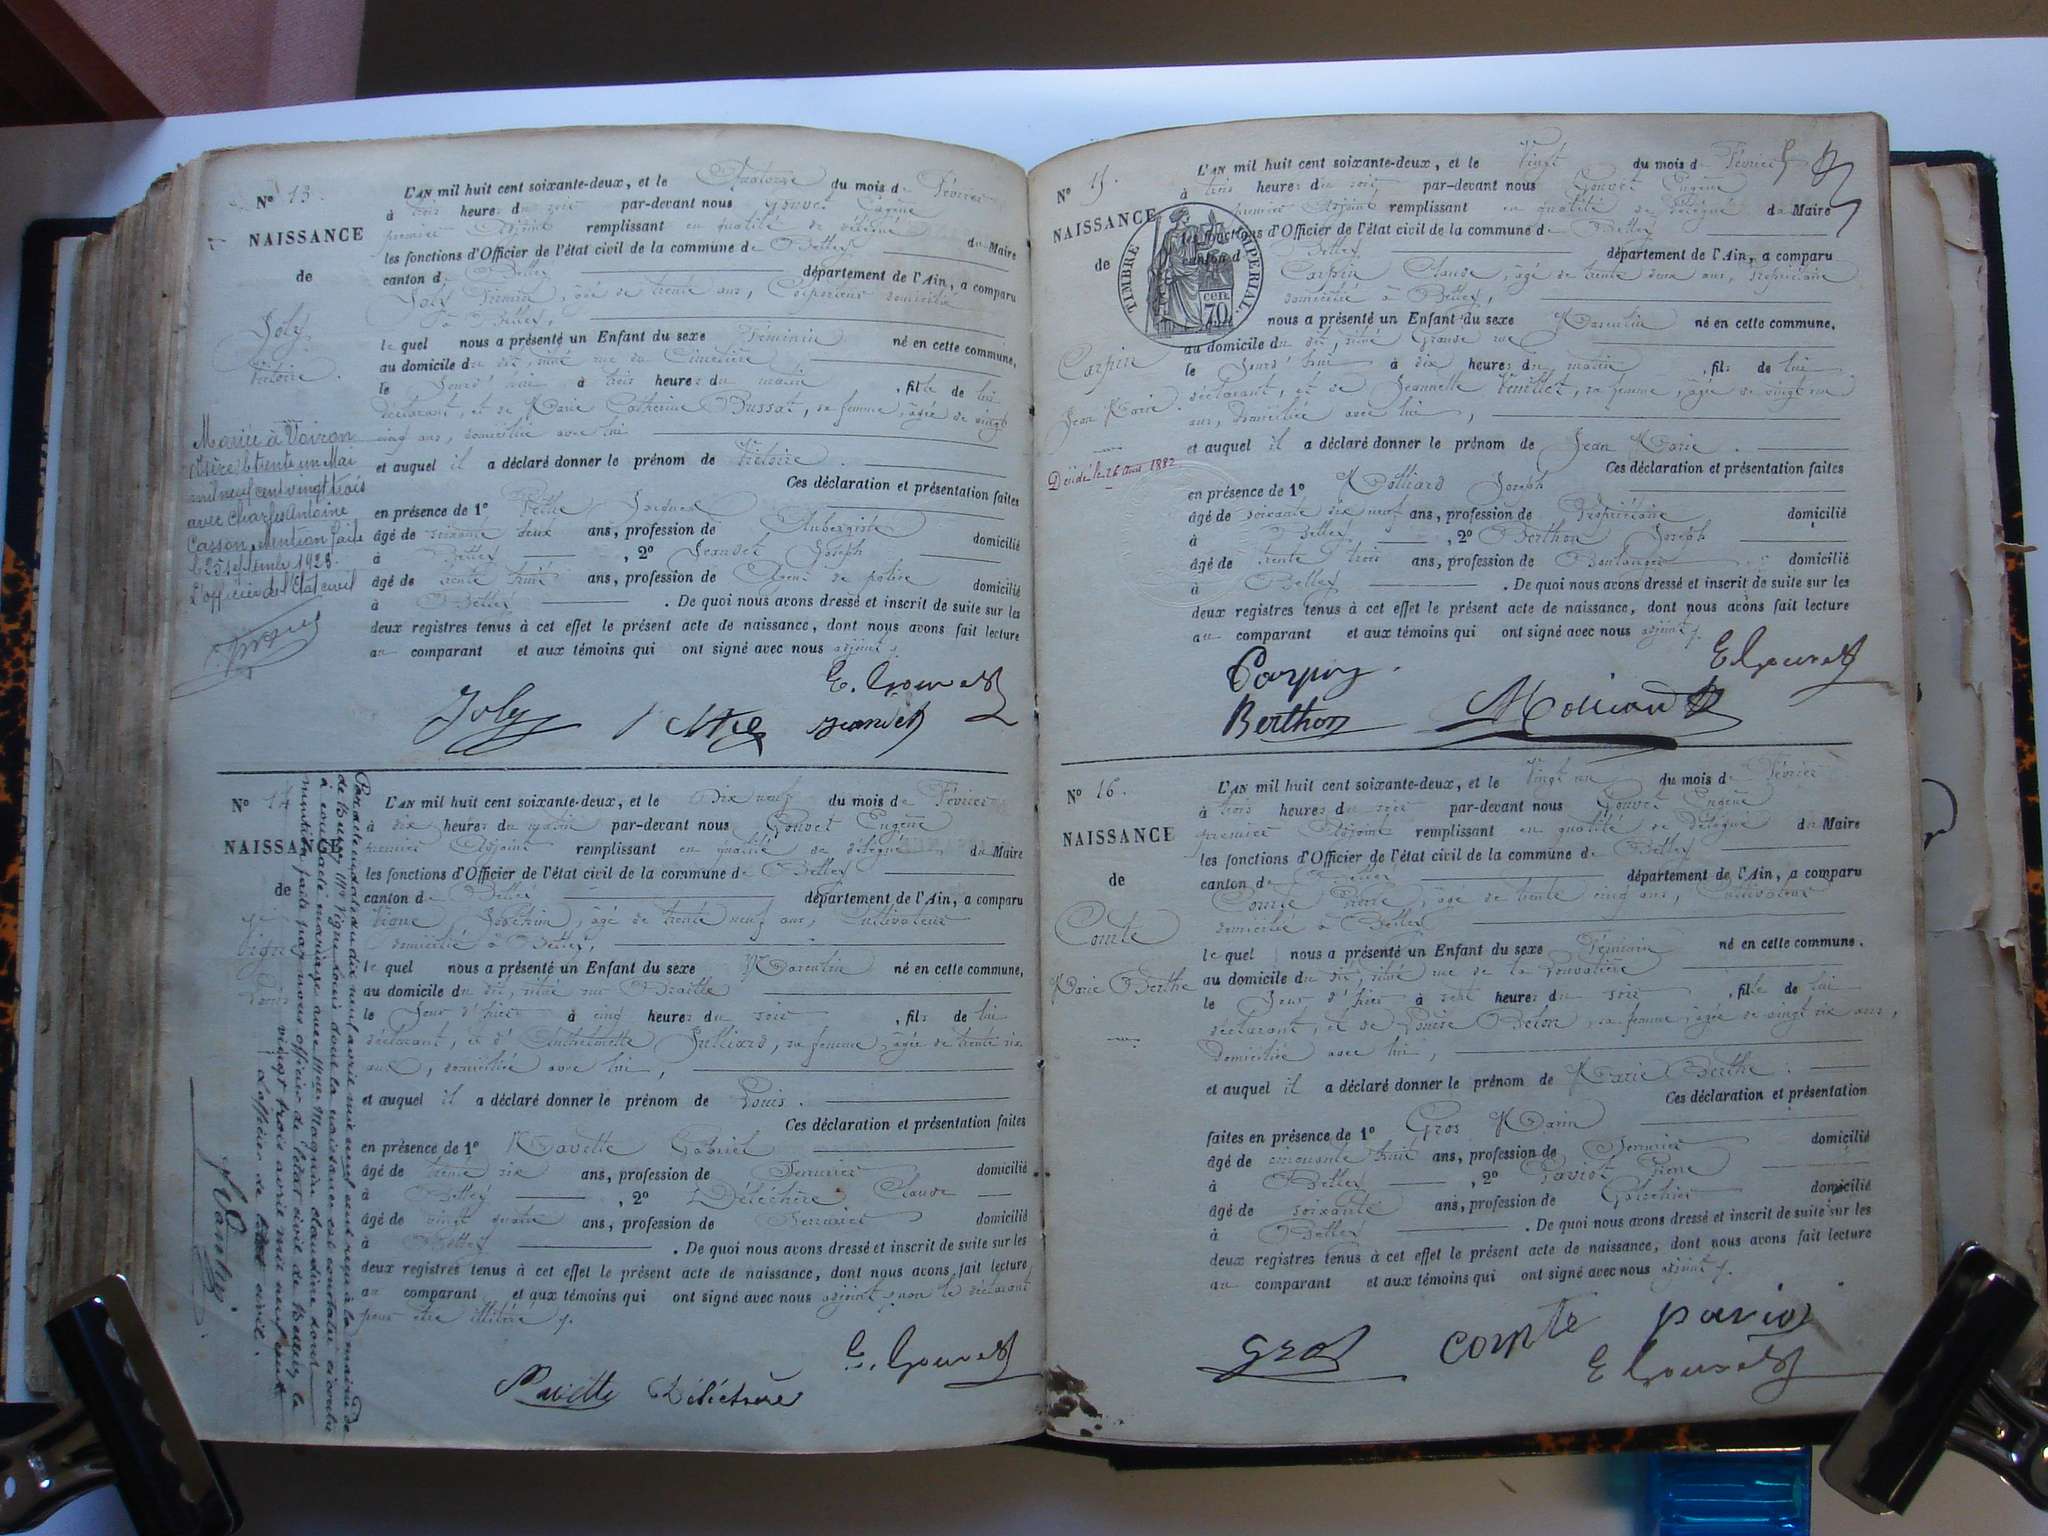 N° 13.
NAISSANCE
de
Joly
Victoire.
Mariée à Voiron
(Isère) le trente un Mai
mil neuf cent vingt trois
avec Charles Antoine
Casson, mention faite
le 25 septembre 1923.
L'officier de l'Etat civil
L'AN mil huit cent soixante-deux, et le Quatorze du mois de Février
à trois heures du soir par-devant nous Gouvet Eugène
premier Adjoint remplissant en qualité de délégué du Maire
les fonctions d'Officier de l'état civil de la commune de Belley
canton de Belley département de l'Ain, a comparu
Joly Firmin, âgé de trente ans, Colporteur domicilié
à Belley,
lequel nous a présenté un Enfant du sexe Féminin né en cette commune,
au domicile du dit, situé rue du Cimetière,
le Jourd'hui à trois heures du matin, fille de lui
déclarant, et de Marie Catherine Bussat, sa femme, âgée de vingt
cinq ans, domiciliée avec lui
et auquel il a déclaré donner le prénom de Victoire.
Ces déclaration et présentation faites
en présence de 1°
âgé de soixante deux ans, profession de Aubergiste domicilié
à Belley, 2° Jeandet Joseph
âgé de trente huit ans, profession de Agent de police domicilié
à Belley. De quoi nous avons dressé et inscrit de suite sur les
deux registres tenus à cet effet le présent acte de naissance, dont nous avons fait lecture
au comparant et aux témoins qui ont signé avec nous adjoint.
E. Gouvet
Joly Jeandet
N° 14
NAISSANCE
de
Vigne
Louis
Par acte en date du dix neuf avril mil neuf cent reçu à la mairie de
de Mr Vigne Louis dont la naissance est constatée ci contre
a contracté mariage avec Melle Maguin Claudine dont
mention faite par nous officier de l'état civil de Belley le
vingt trois avril mil neuf cent
L'officier de l'état civil.
L'AN mil huit cent soixante-deux, et le Dix neuf du mois de Février
à dix heures du matin par-devant nous Gouvet Eugène
premier Adjoint remplissant en qualité de délégué du Maire
les fonctions d'Officier de l'état civil de la commune de Belley
canton de Belley département de l'Ain, a comparu
Vigne Joséphin, âgé de trente neuf ans, cultivateur
domicilié à Belley,
lequel nous a présenté un Enfant du sexe Masculin né en cette commune,
au domicile du dit, situé rue Braille
le Jour d'hier à cinq heures du soir, fils de lui
déclarant, et d'Anthelmette Juilliard, sa femme, âgée de trente six
ans, domiciliée avec lui,
et auquel il a déclaré donner le prénom de Louis.
Ces déclaration et présentation faites
en présence de 1° Navette Gabriel
âgé de trente six ans, profession de Serrurier domicilié
à Belley, 2° Délechère Claude
âgé de vingt quatre ans, profession de Serrurier domicilié
à Belley. De quoi nous avons dressé et inscrit de suite sur les
deux registres tenus à cet effet le présent acte de naissance, dont nous avons fait lecture
au comparant et aux témoins qui ont signé avec nous adjoint, non le déclarant
pour être illitéré.
E. Gouvet
Navette Deléchère
N° 15.
NAISSANCE
de
Carpin
Jean Marie.
Décédé le 26 Août 1882
TIMBRE IMPERIAL
70 cen.
L'AN mil huit cent soixante-deux, et le Vingt du mois de Février
à trois heures du soir par-devant nous Gouvet Eugène
premier Adjoint remplissant en qualité de délégué du Maire
les fonctions d'Officier de l'état civil de la commune de Belley
canton de Belley département de l'Ain, a comparu
Carpin Claude, âgé de trente deux ans, propriétaire
domicilié à Belley,
nous a présenté un Enfant du sexe Masculin né en cette commune,
au domicile du dit, situé Grande rue
le Jourd'hui à dix heures du matin, fils de lui
déclarant, et de Jeannette Venillet, sa femme, âgée de vingt un
ans, domiciliée avec lui,
et auquel il a déclaré donner le prénom de Jean Marie.
Ces déclaration et présentation faites
en présence de 1° Molliard Joseph
âgé de soixante dix neuf ans, profession de Propriétaire domicilié
à Belley, 2° Berthon Joseph
âgé de trente trois ans, profession de Boulanger domicilié
à Belley. De quoi nous avons dressé et inscrit de suite sur les
deux registres tenus à cet effet le présent acte de naissance, dont nous avons fait lecture
au comparant et aux témoins qui ont signé avec nous adjoint.
E Gouvet
Carpin
Berthon Molliard
N° 16.
NAISSANCE
de
Comte
Marie Berthe
L'AN mil huit cent soixante-deux, et le Vingt un du mois de Février
à trois heures du soir par-devant nous Gouvet Eugène
premier Adjoint remplissant en qualité de délégué du Maire
les fonctions d'Officier de l'état civil de la commune de Belley
canton de Belley département de l'Ain, a comparu
Comte Pierre, âgé de trente cinq ans, Cultivateur
domicilié à Belley
lequel nous a présenté un Enfant du sexe Féminin né en cette commune.
au domicile du dit, situé rue de la Louvatière
le Jour d'hier à sept heures du soir, fille de lui
déclarant, et de Louise Beton, sa femme, âgée de vingt six ans,
domiciliée avec lui,
et auquel il a déclaré donner le prénom de Marie Berthe.
Ces déclaration et présentation
faites en présence de 1° Gros Marin
âgé de cinquante huit ans, profession de Serrurier domicilié
à Belley, 2° Paviot Pierre
âgé de soixante ans, profession de domicilié
à Belley. De quoi nous avons dressé et inscrit de suite sur les
deux registres tenus à cet effet le présent acte de naissance, dont nous avons fait lecture
au comparant et aux témoins qui ont signé avec nous adjoint.
Gros Comte Paviot
E Gouvet